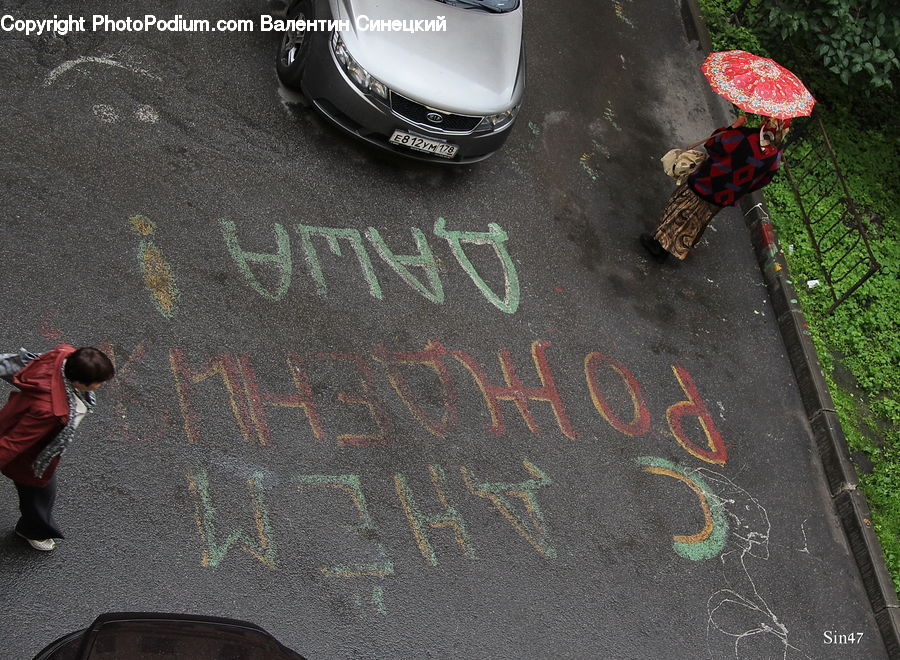 Copyright PhotoPodium.com Валентин Синецкий
KIA
Е812УМ 178
С ДНЁМ
РОЖДЕНИЯ
ДАША!
Sin47